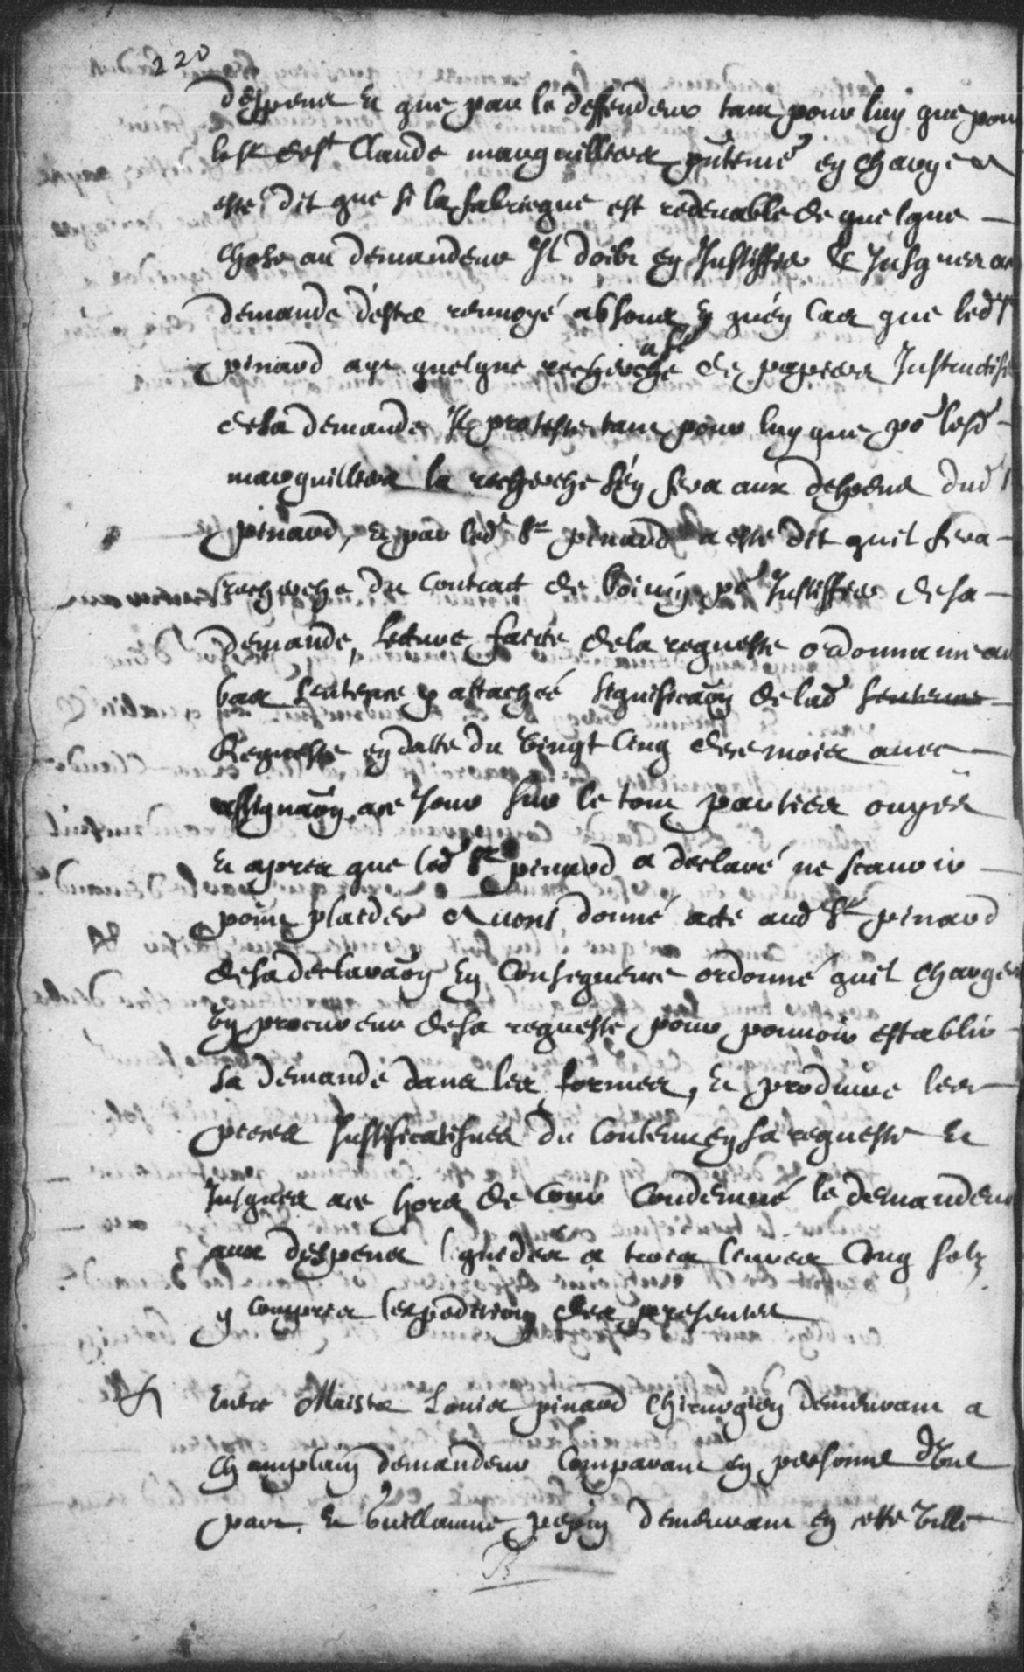 220
despens Et que par le deffendeur tant pour luy que pour
les Sr de St Claude marguilliers en charge a
esté dit que si la fabricque est redevable de quelque
chose au demandeur Il doibt en Justiffier Et Jusques a ce
demande d'estre renvoyé absoud Et qu'en cas que led Sr
pinard aye quelque recherche a fe de papiers Instructifs
de la demande Il proteste tant pour luy que pr lesd
marguilliers la recherche s'en fera aux despens dud Sr
pinard, Et par led Sr pinard a esté dit quil fera
recherche du Contract de pr Justiffier de sa
demande, Lecture faite de la requeste ordonnance au
bas Sentence y attachée significaon de lad Sentence
Requeste en datte du vingt Cinq de ce mois avec
assignaon a ce Jour sur le tout parties ouyes
Et apres que led Sr pinard a declaré ne scavoir
point plaider Avons donné acte aud Sr pinard
de sa declaraon En Consequence ordonné quil chargera
un procureur de sa requeste pour pouvoir establir
sa demande dans les formes, Et produire les
pieces Justificatifves du Contenu en sa requeste Et
Jusques a ce hors de Cour Condemné le demandeur
aux despens liquidez a trois livres Cinq solz
y compris lexpedition des presentes
Entre Maistre Louis pinard Chirurgien demeurant a
Champlain demandeur Comparant en personne d'une
part, Et Guillaume pepin demeurant en cette ville